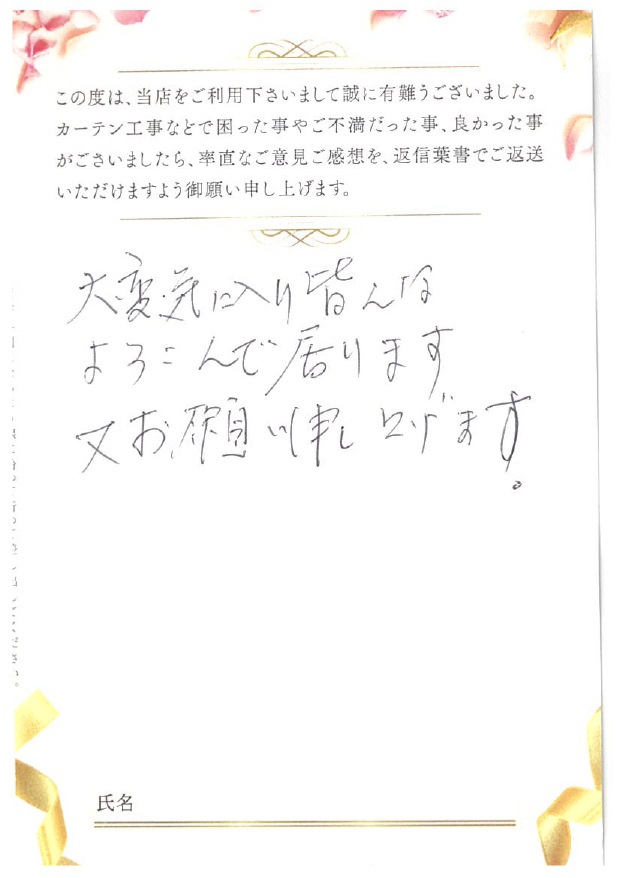 この度は、当店をご利用下さいまして誠に有難うございました。
カーテン工事などで困った事やご不満だった事、良かった事
がございましたら、率直なご意見ご感想を、返信葉書でご返送
いただけますよう御願い申し上げます。
大変気に入り皆んな
よろこんで居ります
又お願い申し上げます。
氏名